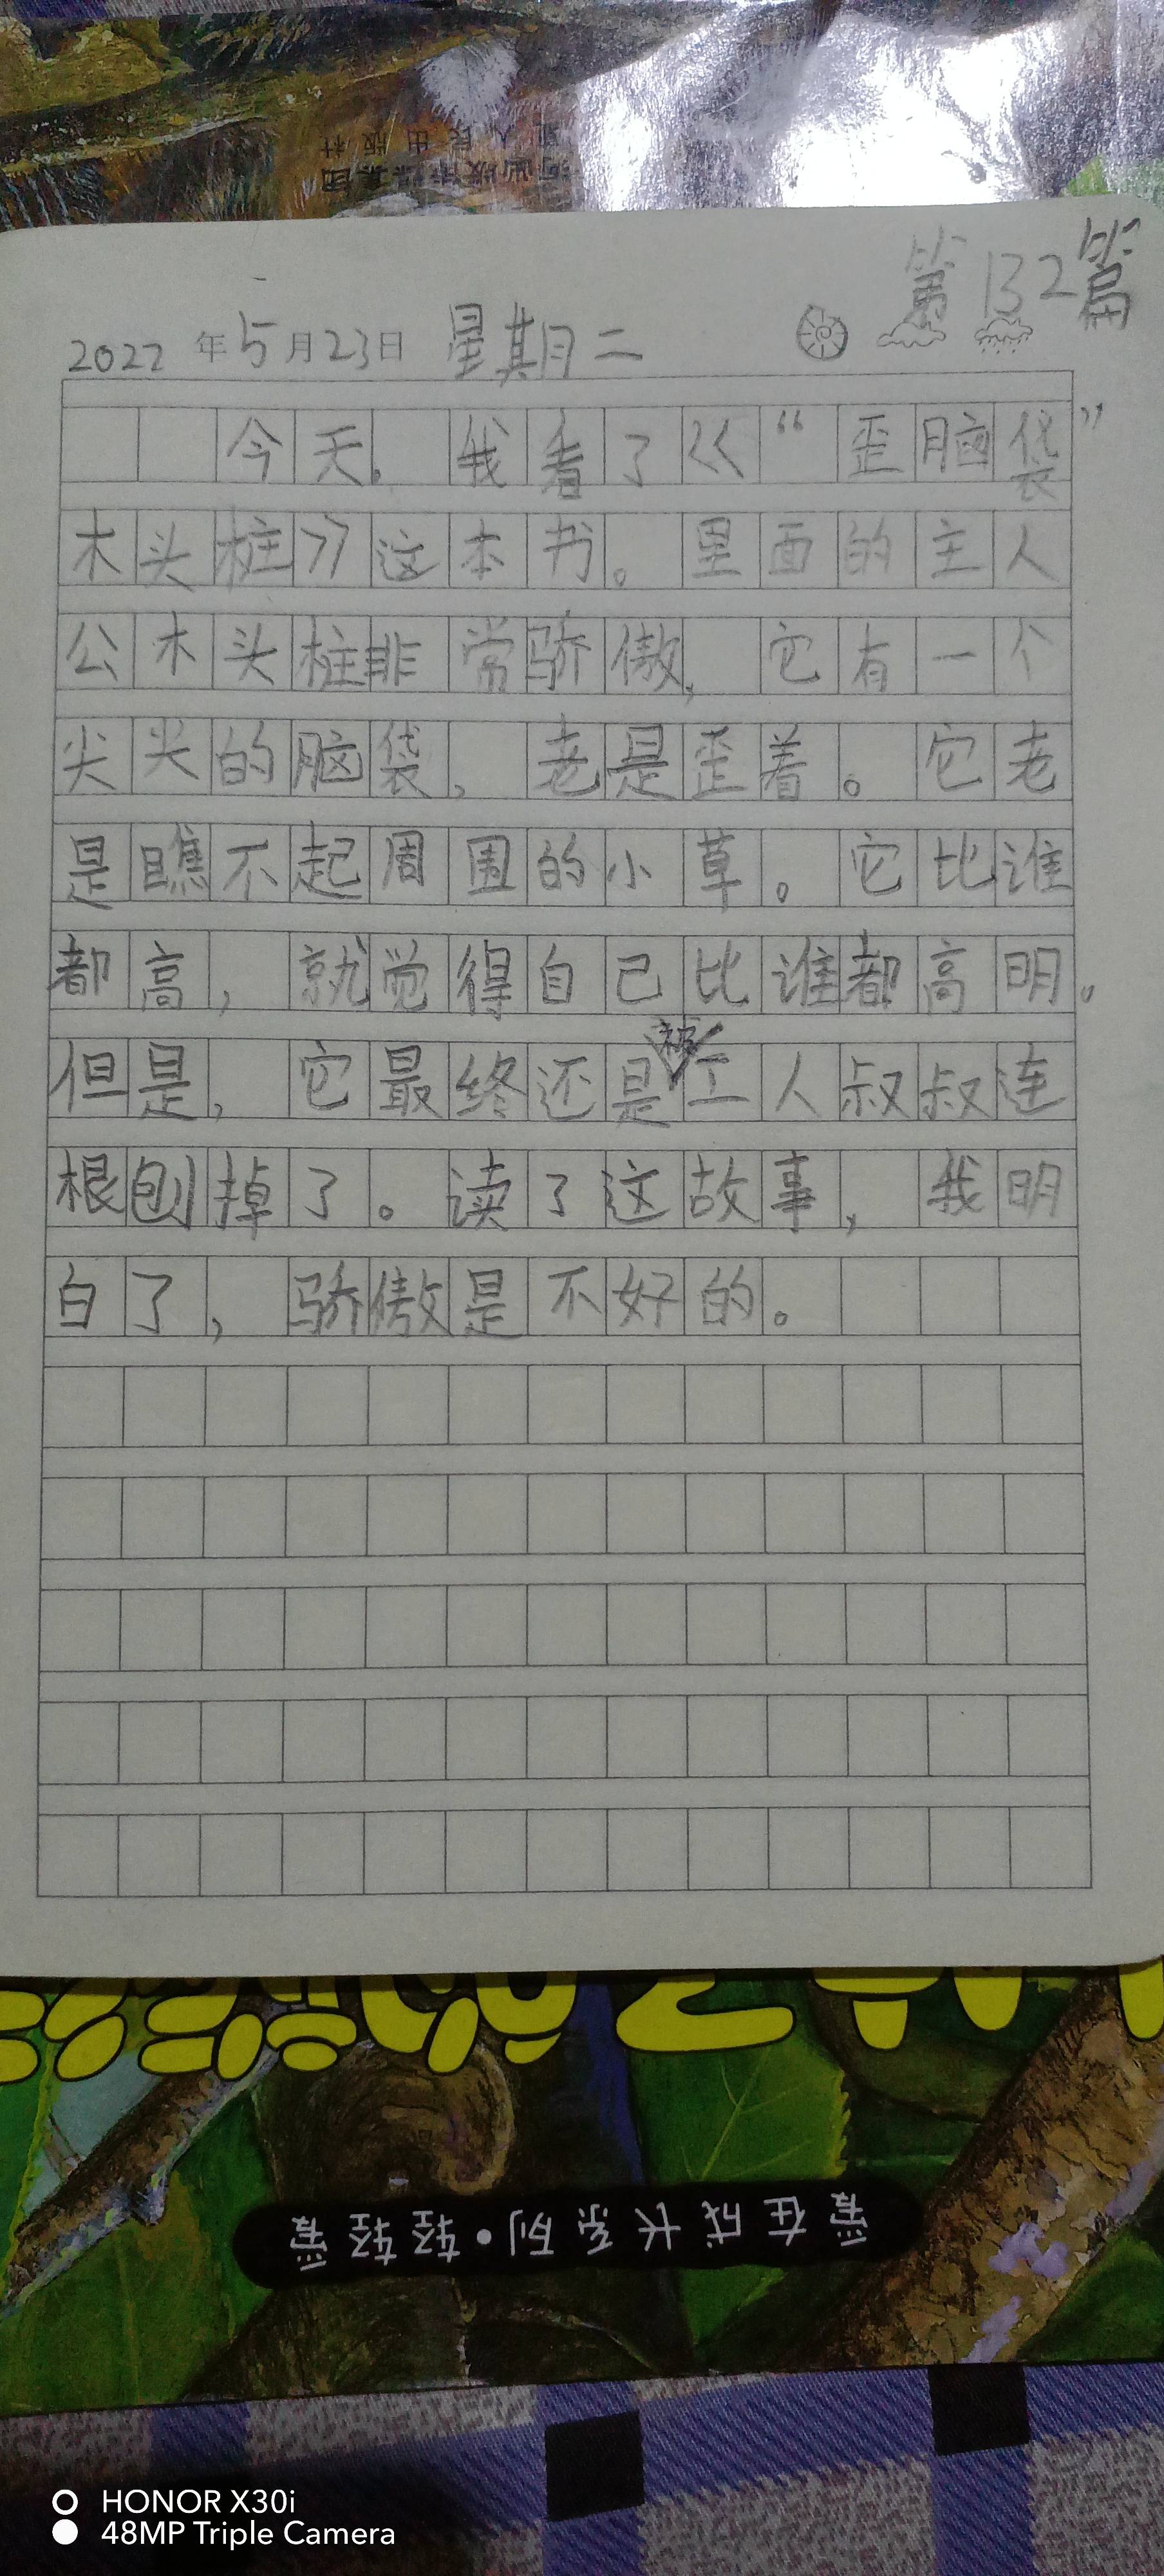 第132篇
2022年5月23日 星期二
今天,我看了《“歪脑袋”
木头桩》这本书。里面的主人
公木头桩非常骄傲,它有一个
尖尖的脑袋,老是歪着。它老
是瞧不起周围的小草。它比谁
都高,就觉得自己比谁都高明。
但是,它最终还是被工人叔叔连
根刨掉了。读了这故事,我明
白了,骄傲是不好的。
爱在成长系列·轻轻爱
HONOR X30i
48MP Triple Camera